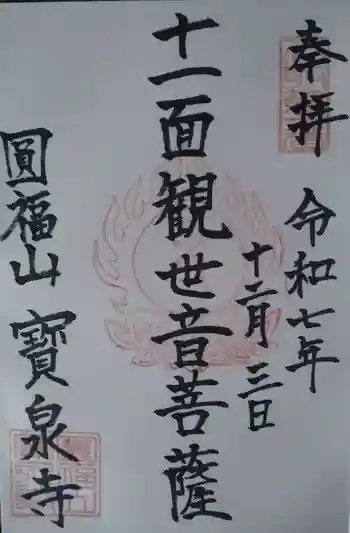 奉拝
令和七年
十二月三日
十一面観世音菩薩
圓福山寶泉寺